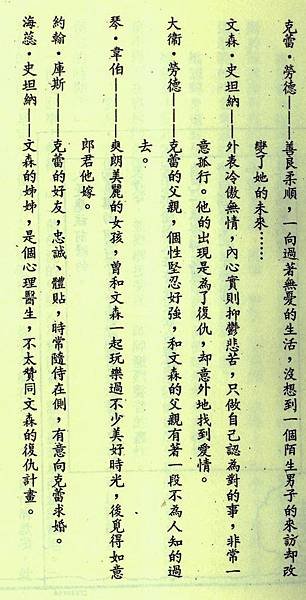 克蕾‧勞德———善良柔順，一向過著無憂的生活，沒想到一個陌生男子的來訪卻改
變了她的未來……
文森‧史坦納——外表冷傲無情，內心實則抑鬱悲苦，只做自己認為對的事，非常一
意孤行。他的出現是為了復仇，卻意外地找到愛情。
大衞‧勞德———克蕾的父親，個性堅忍好強，和文森的父親有著一段不為人知的過
去。
琴‧韋伯————爽朗美麗的女孩，曾和文森一起玩樂過不少美好時光，後覓得如意
郎君他嫁。
約翰‧庫斯———克蕾的好友，忠誠、體貼，時常隨侍在側，有意向克蕾求婚。
海蕊‧史坦納——文森的姊姊，是個心理醫生，不太贊同文森的復仇計畫。